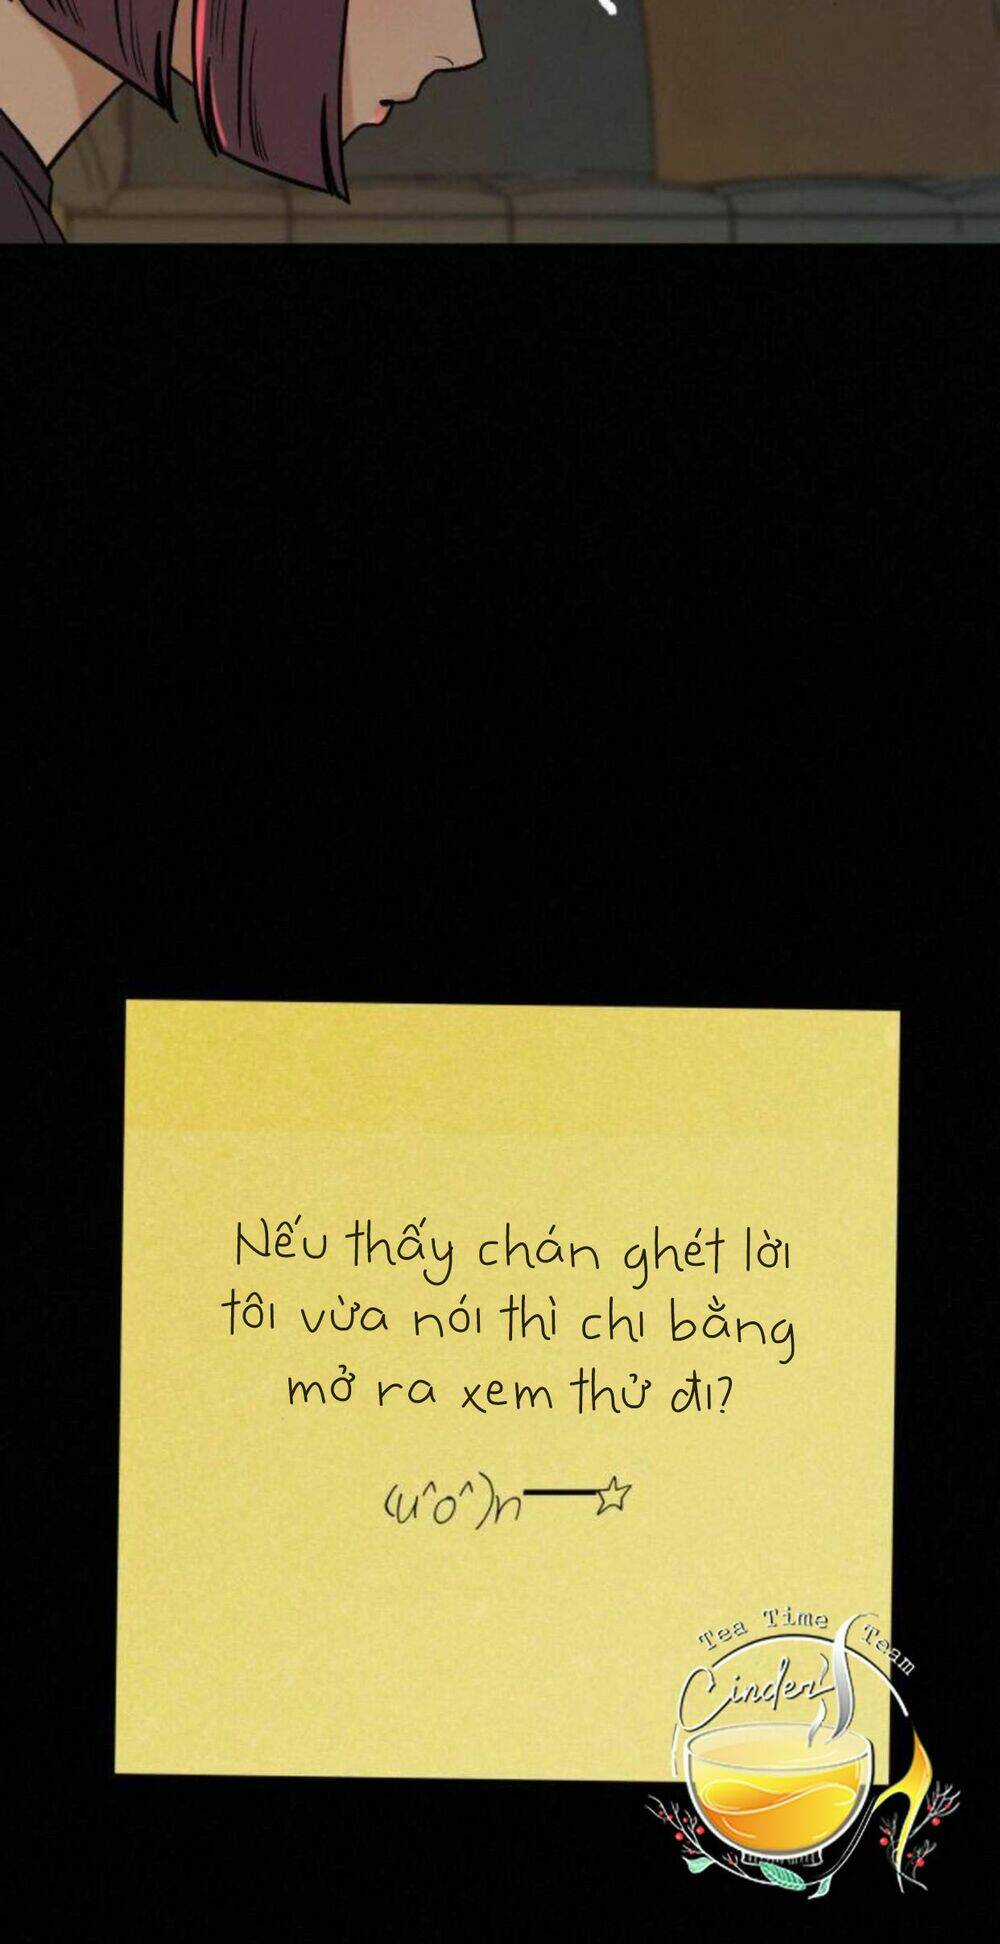 Nếu thấy chán ghét lời
tôi vừa nói thì chi bằng
mở ra xem thử đi?
(u^o^)n━━☆
Tea Time Team
Cinder